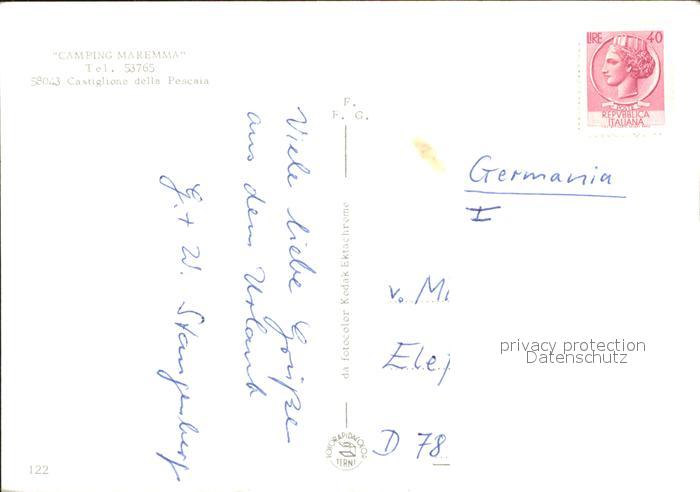 "CAMPING MAREMMA"
Tel. 53765
58043 Castiglione della Pescaia
LIRE 40
POSTE
REPVBBLICA
ITALIANA
F.
F. G.
Viele liebe Grüße
aus dem Urlaub
G. + W. Stangenberg
da fotocolor Kodak Ektachrome
FOTORAPIDACOLOR
TERNI
Germania
v. Mi
Ele
D 78
privacy protection
Datenschutz
122